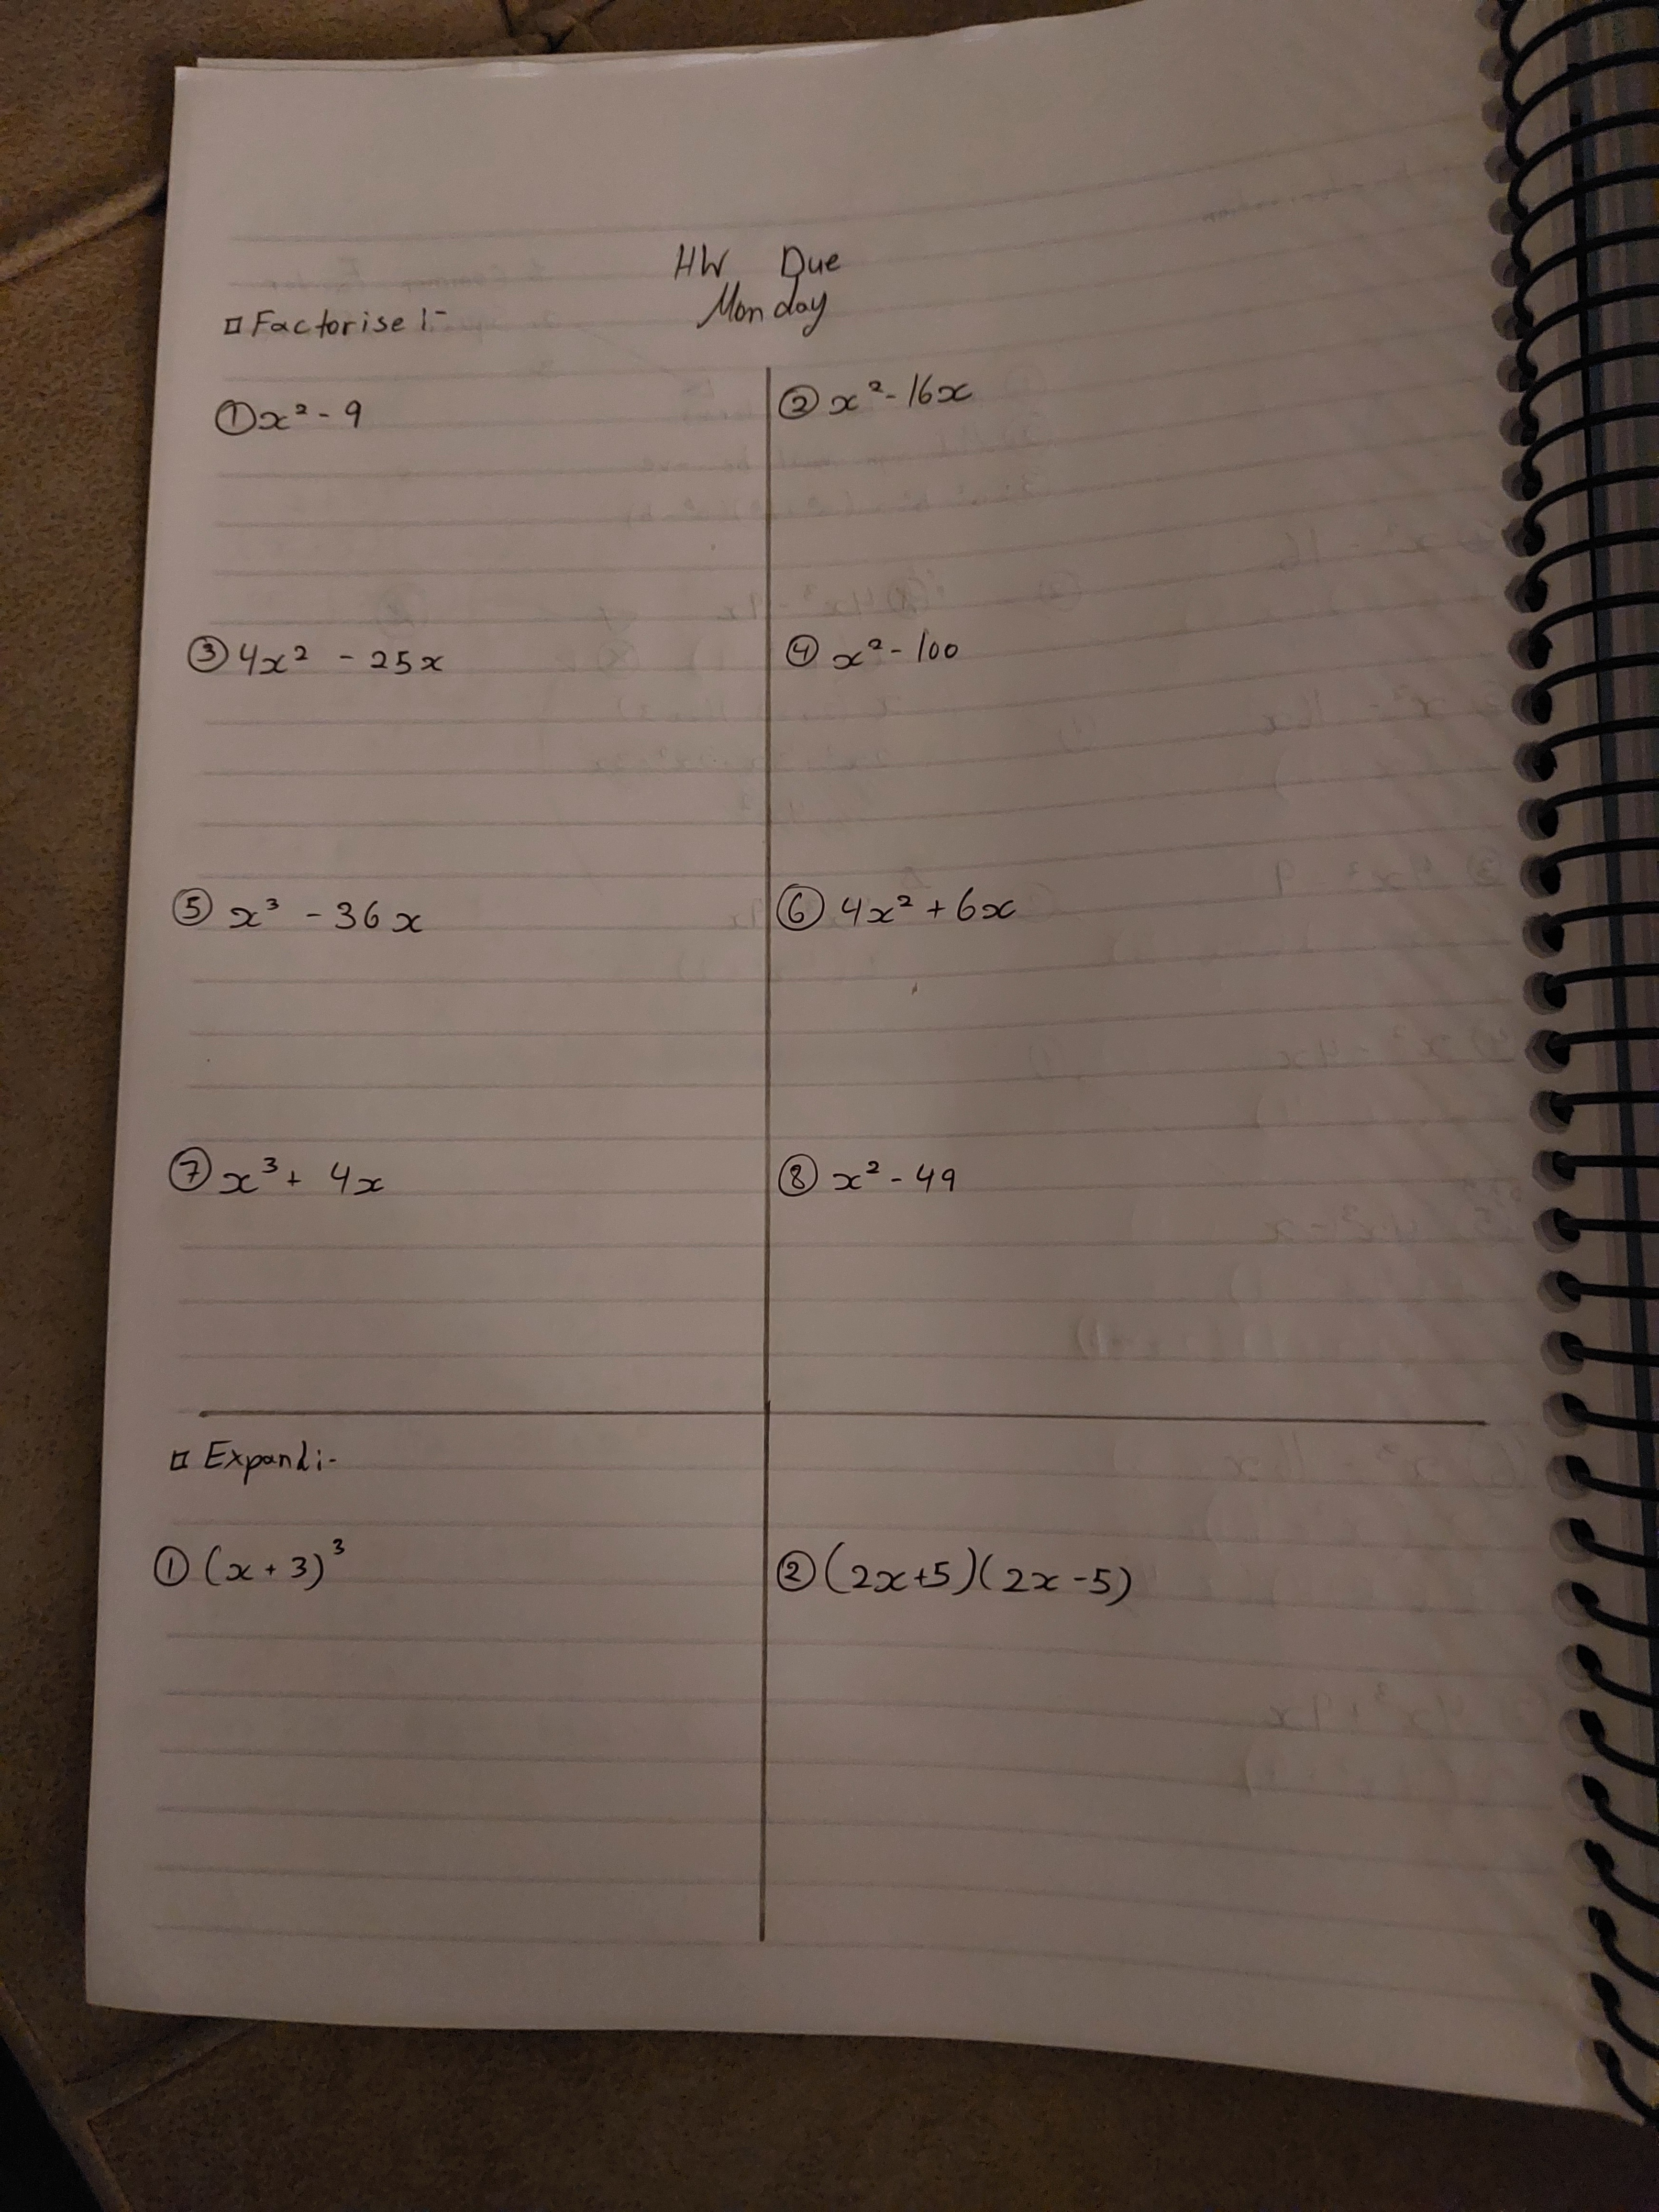 HW Due
Monday
□ Factorise :-
① x² - 9
② x² - 16x
③ 4x² - 25x
④ x² - 100
⑤ x³ - 36x
⑥ 4x² + 6x
⑦ x³ + 4x
⑧ x² - 49
□ Expand :-
① (x + 3)³
② (2x+5)(2x-5)